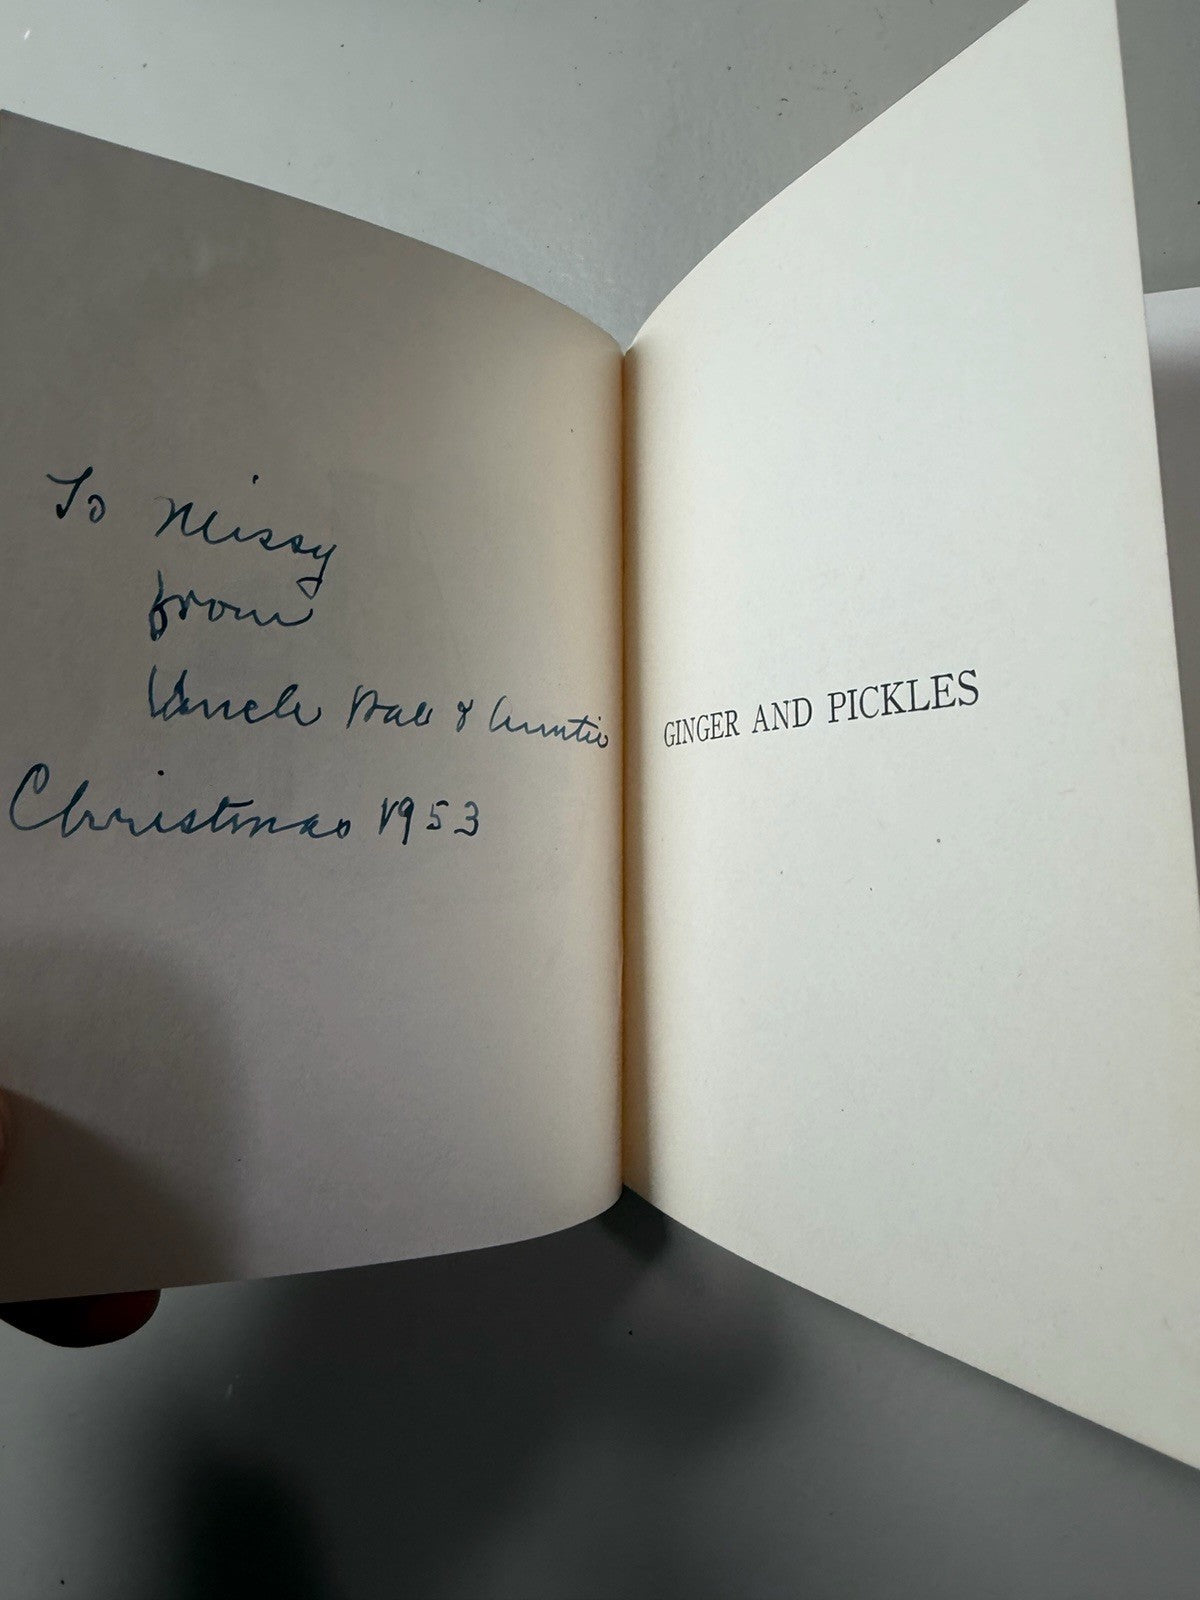 To Missy
from
Uncle & Auntie
Christmas 1953
GINGER AND PICKLES